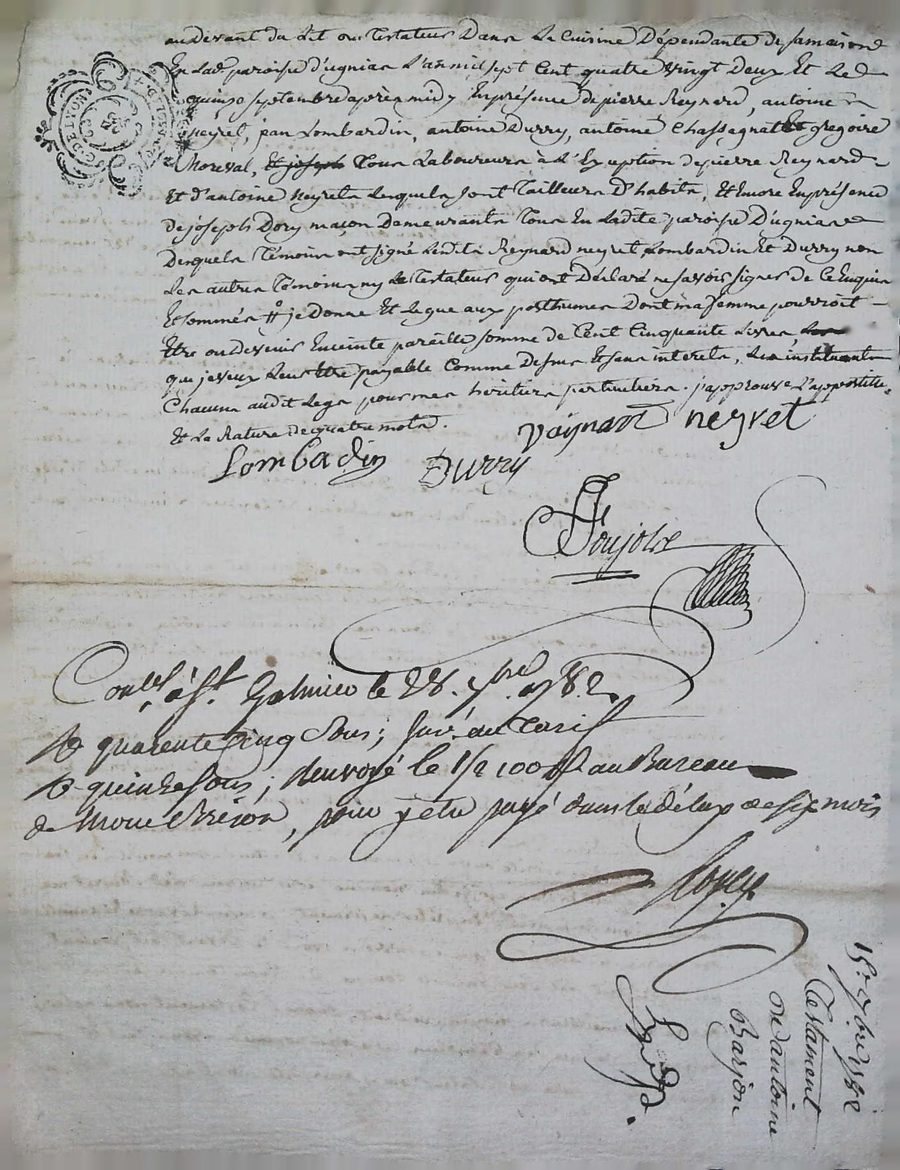 audevant du Lit ou testateur Dans La Cuisine Dépendante de sa maison
En Lad. paroisse d'ugnias L'an mil sept Cent quatre vingt Deux Et Le
quinze septembre après midy En présence de pierre Reynard, antoine
neyret, jean Lombardin, antoine Durry, antoine Chassagnat Et gregoire
Moreval, Et joseph Tous Laboureurs à L'Exeption de pierre Reynard
Et d'antoine Neyret Lesquels sont tailleurs D'habits, Et Encore En présence
de joseph Dory maçon Demeurants Tous En Ladite paroisse D'ugnias
Desquels Témoins ont signé Lesdits Reynard neyret Lombardin Et Durry non
Les autres Témoins ny Le testateur qui ont Déclaré ne savoir signer de Ce Enquis
Et sommés # je Donne Et Legue aux posthumes Dont ma femme pourroit
Etre ou devenir Enceinte pareille somme de Cent Cinquante Livres,
que je veux Leur Etre payable Comme Dessus Et sans interets, Les instituants
Chacuns audit Legs pour mes héritiers particuliers. j'approuve L'apostille
Et La Rature de quatre mots.
Raynard neyret
Lombadin Durry
Poujols
Con.lé à St. Galmier le 28. 7bre 1782
R quarente cinq Sous; suiv. au Tarif
R quinze sous; Renvoyé le 1/2 100 d. au Bureau
de Mont Brison, pour y etre payé dans le délay de six mois
15. 7bre 1782
Testament
de antoine
Barjon